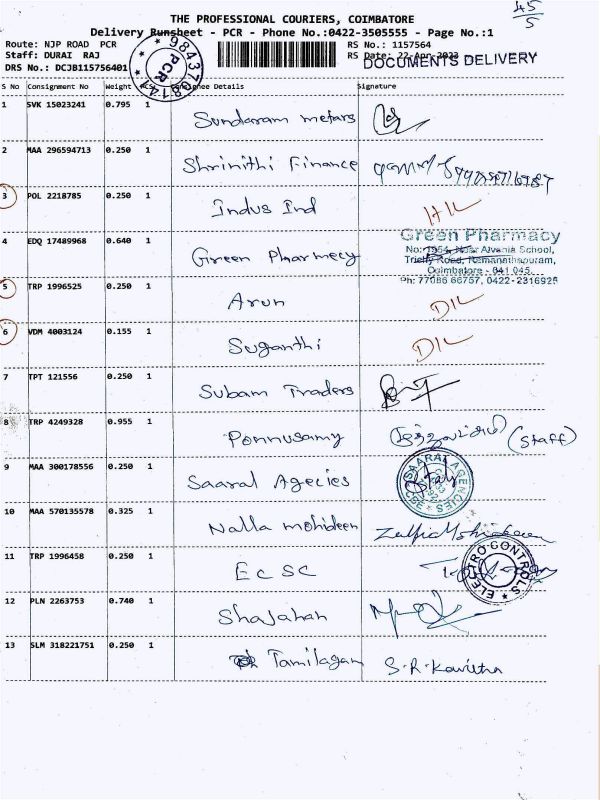 45
5
THE PROFESSIONAL COURIERS, COIMBATORE
Delivery Runsheet - PCR - Phone No.:0422-3505555 - Page No.:1
Route: NJP ROAD PCR RS No.: 1157564
Staff: DURAI RAJ RS Date: 22-Apr-2023
DOCUMENTS DELIVERY
DRS No.: DCJB115756401
PCR
S No Consignment No Weight PCS Consignee Details Signature
1 SVK 15023241 0.795 1 Sundaram metars
2 MAA 296594713 0.250 1 Shrinithi Finance
3 POL 2218785 0.250 1 Indus Ind
4 EDQ 17489968 0.640 1 Green Pharmecy
Green Pharmacy
No:1954, Near Alvania School,
Trichy Road, Ramanathapuram,
Coimbatore - 641 045.
Ph: 77086 66757, 0422-2316925
5 TRP 1996525 0.250 1 Arun D/L
6 VDM 4003124 0.155 1 Suganthi D/L
7 TPT 121556 0.250 1 Subam Traders
8 TRP 4249328 0.955 1 Ponnusamy (Staff)
9 MAA 300178556 0.250 1 Saaral Agecies
SAARAL AGENCIES
10 MAA 570135578 0.325 1 Nalla mohideen
11 TRP 1996458 0.250 1 ECSC
ELECTRO CONTROLS
12 PLN 2263753 0.740 1 Shajahan
13 SLM 318221751 0.250 1 Tamilagam S.R.Kavitha